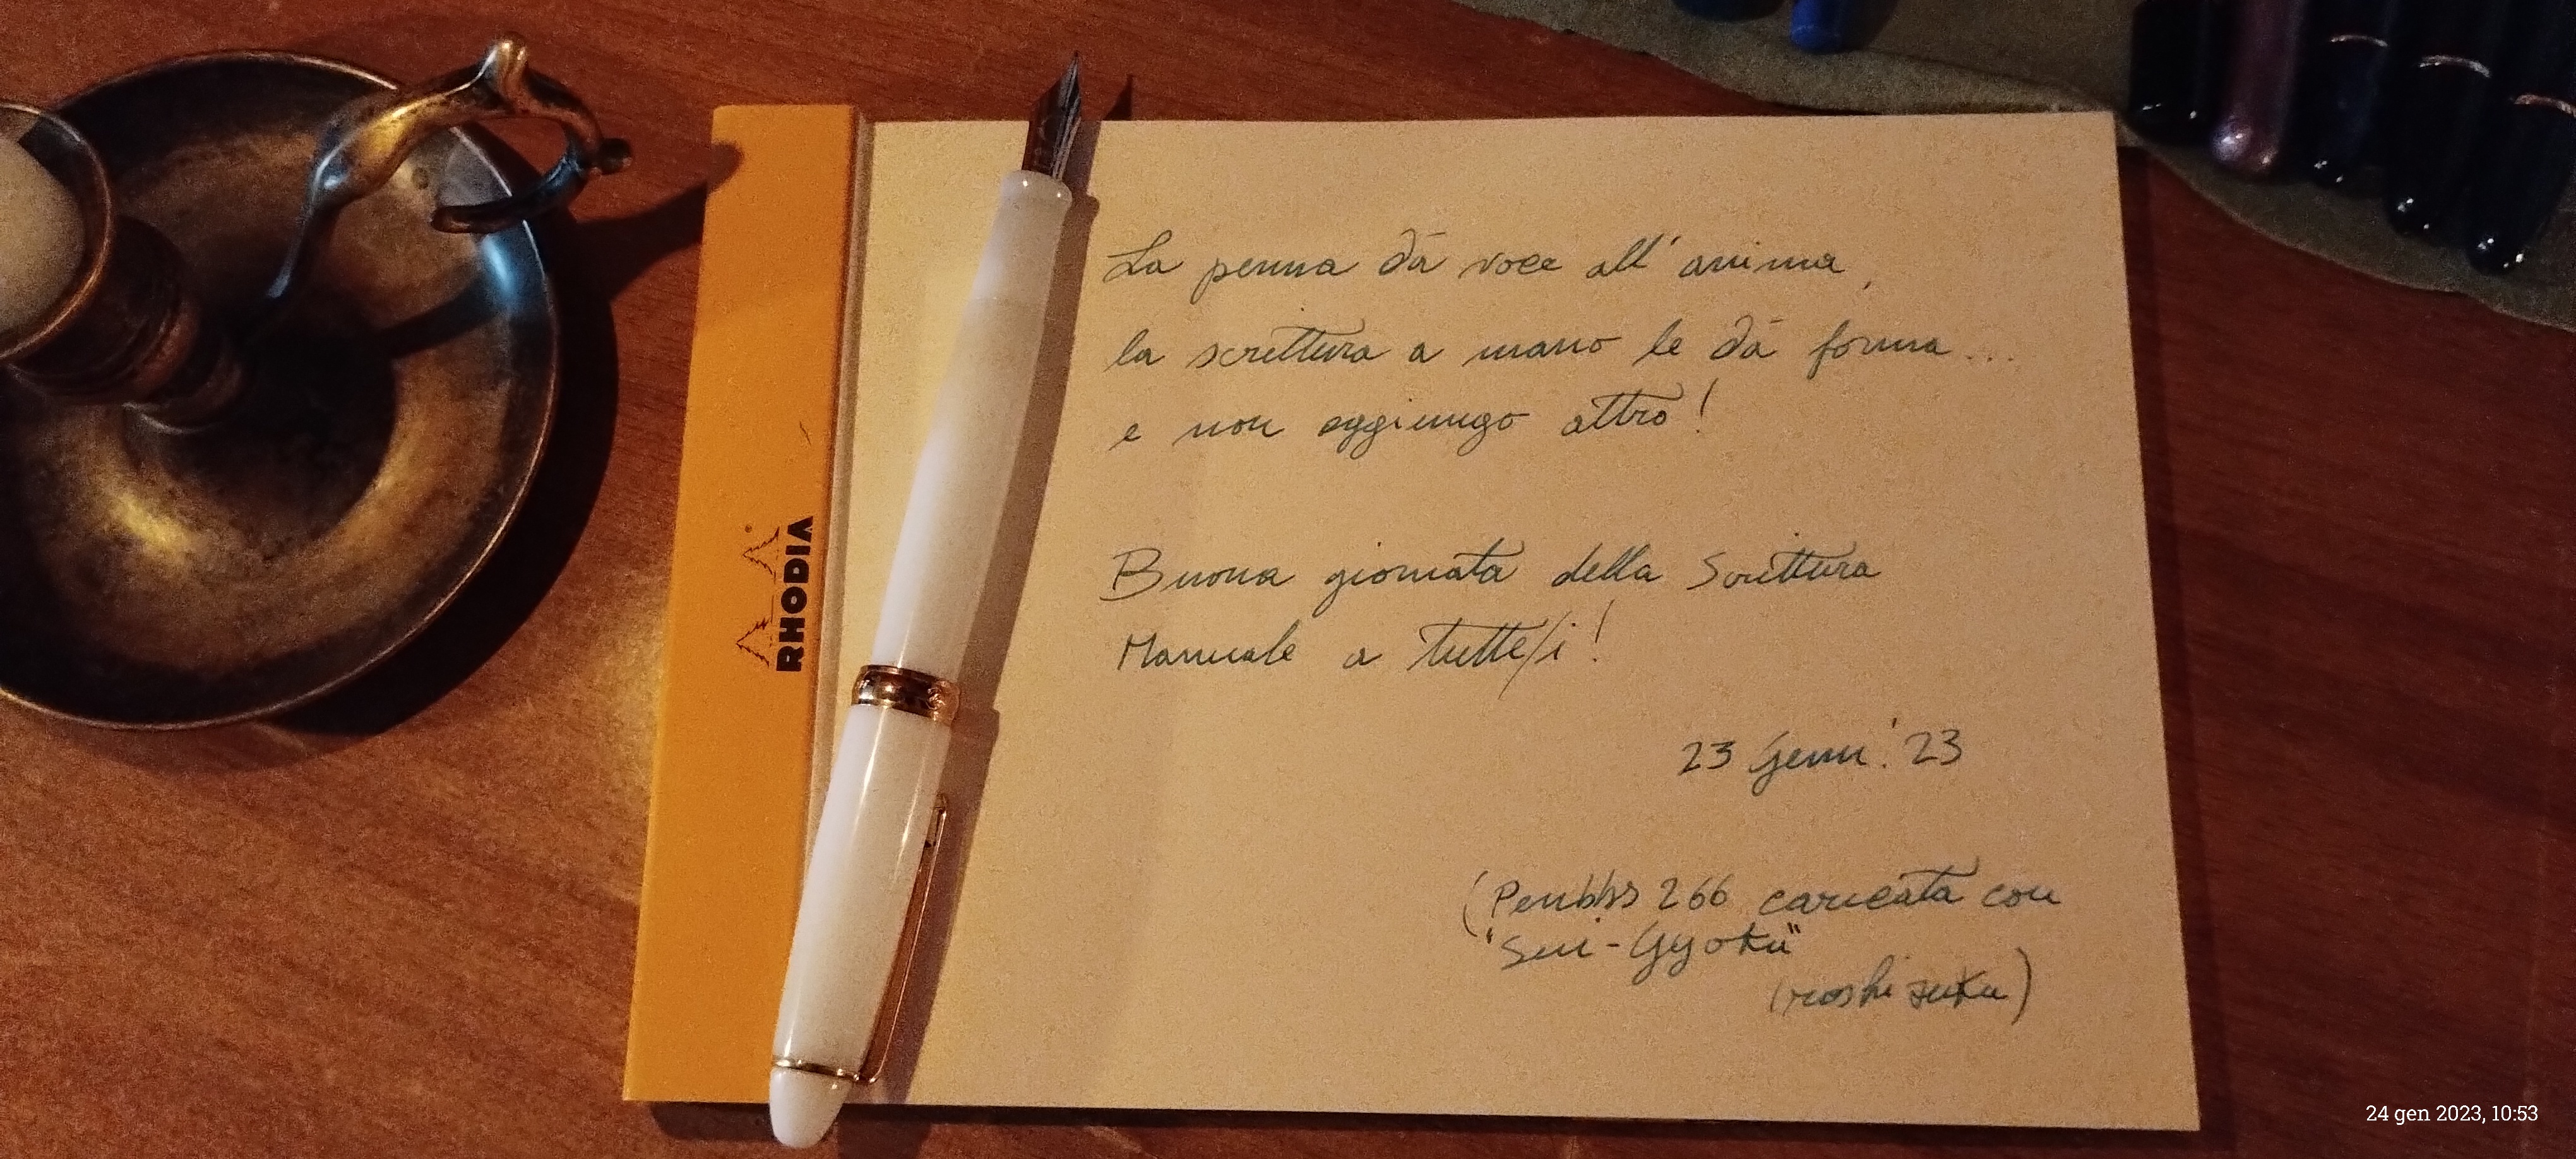 La penna dà voce all'anima,
la scrittura a mano le dà forma...
e non aggiungo altro!
Buona giornata della Scrittura
Manuale a tutte/i!
23 Genn.'23
(Penbbs 266 caricata con
"Sui-Gyoku"
(iroshizuku)
RHODIA
24 gen 2023, 10:53